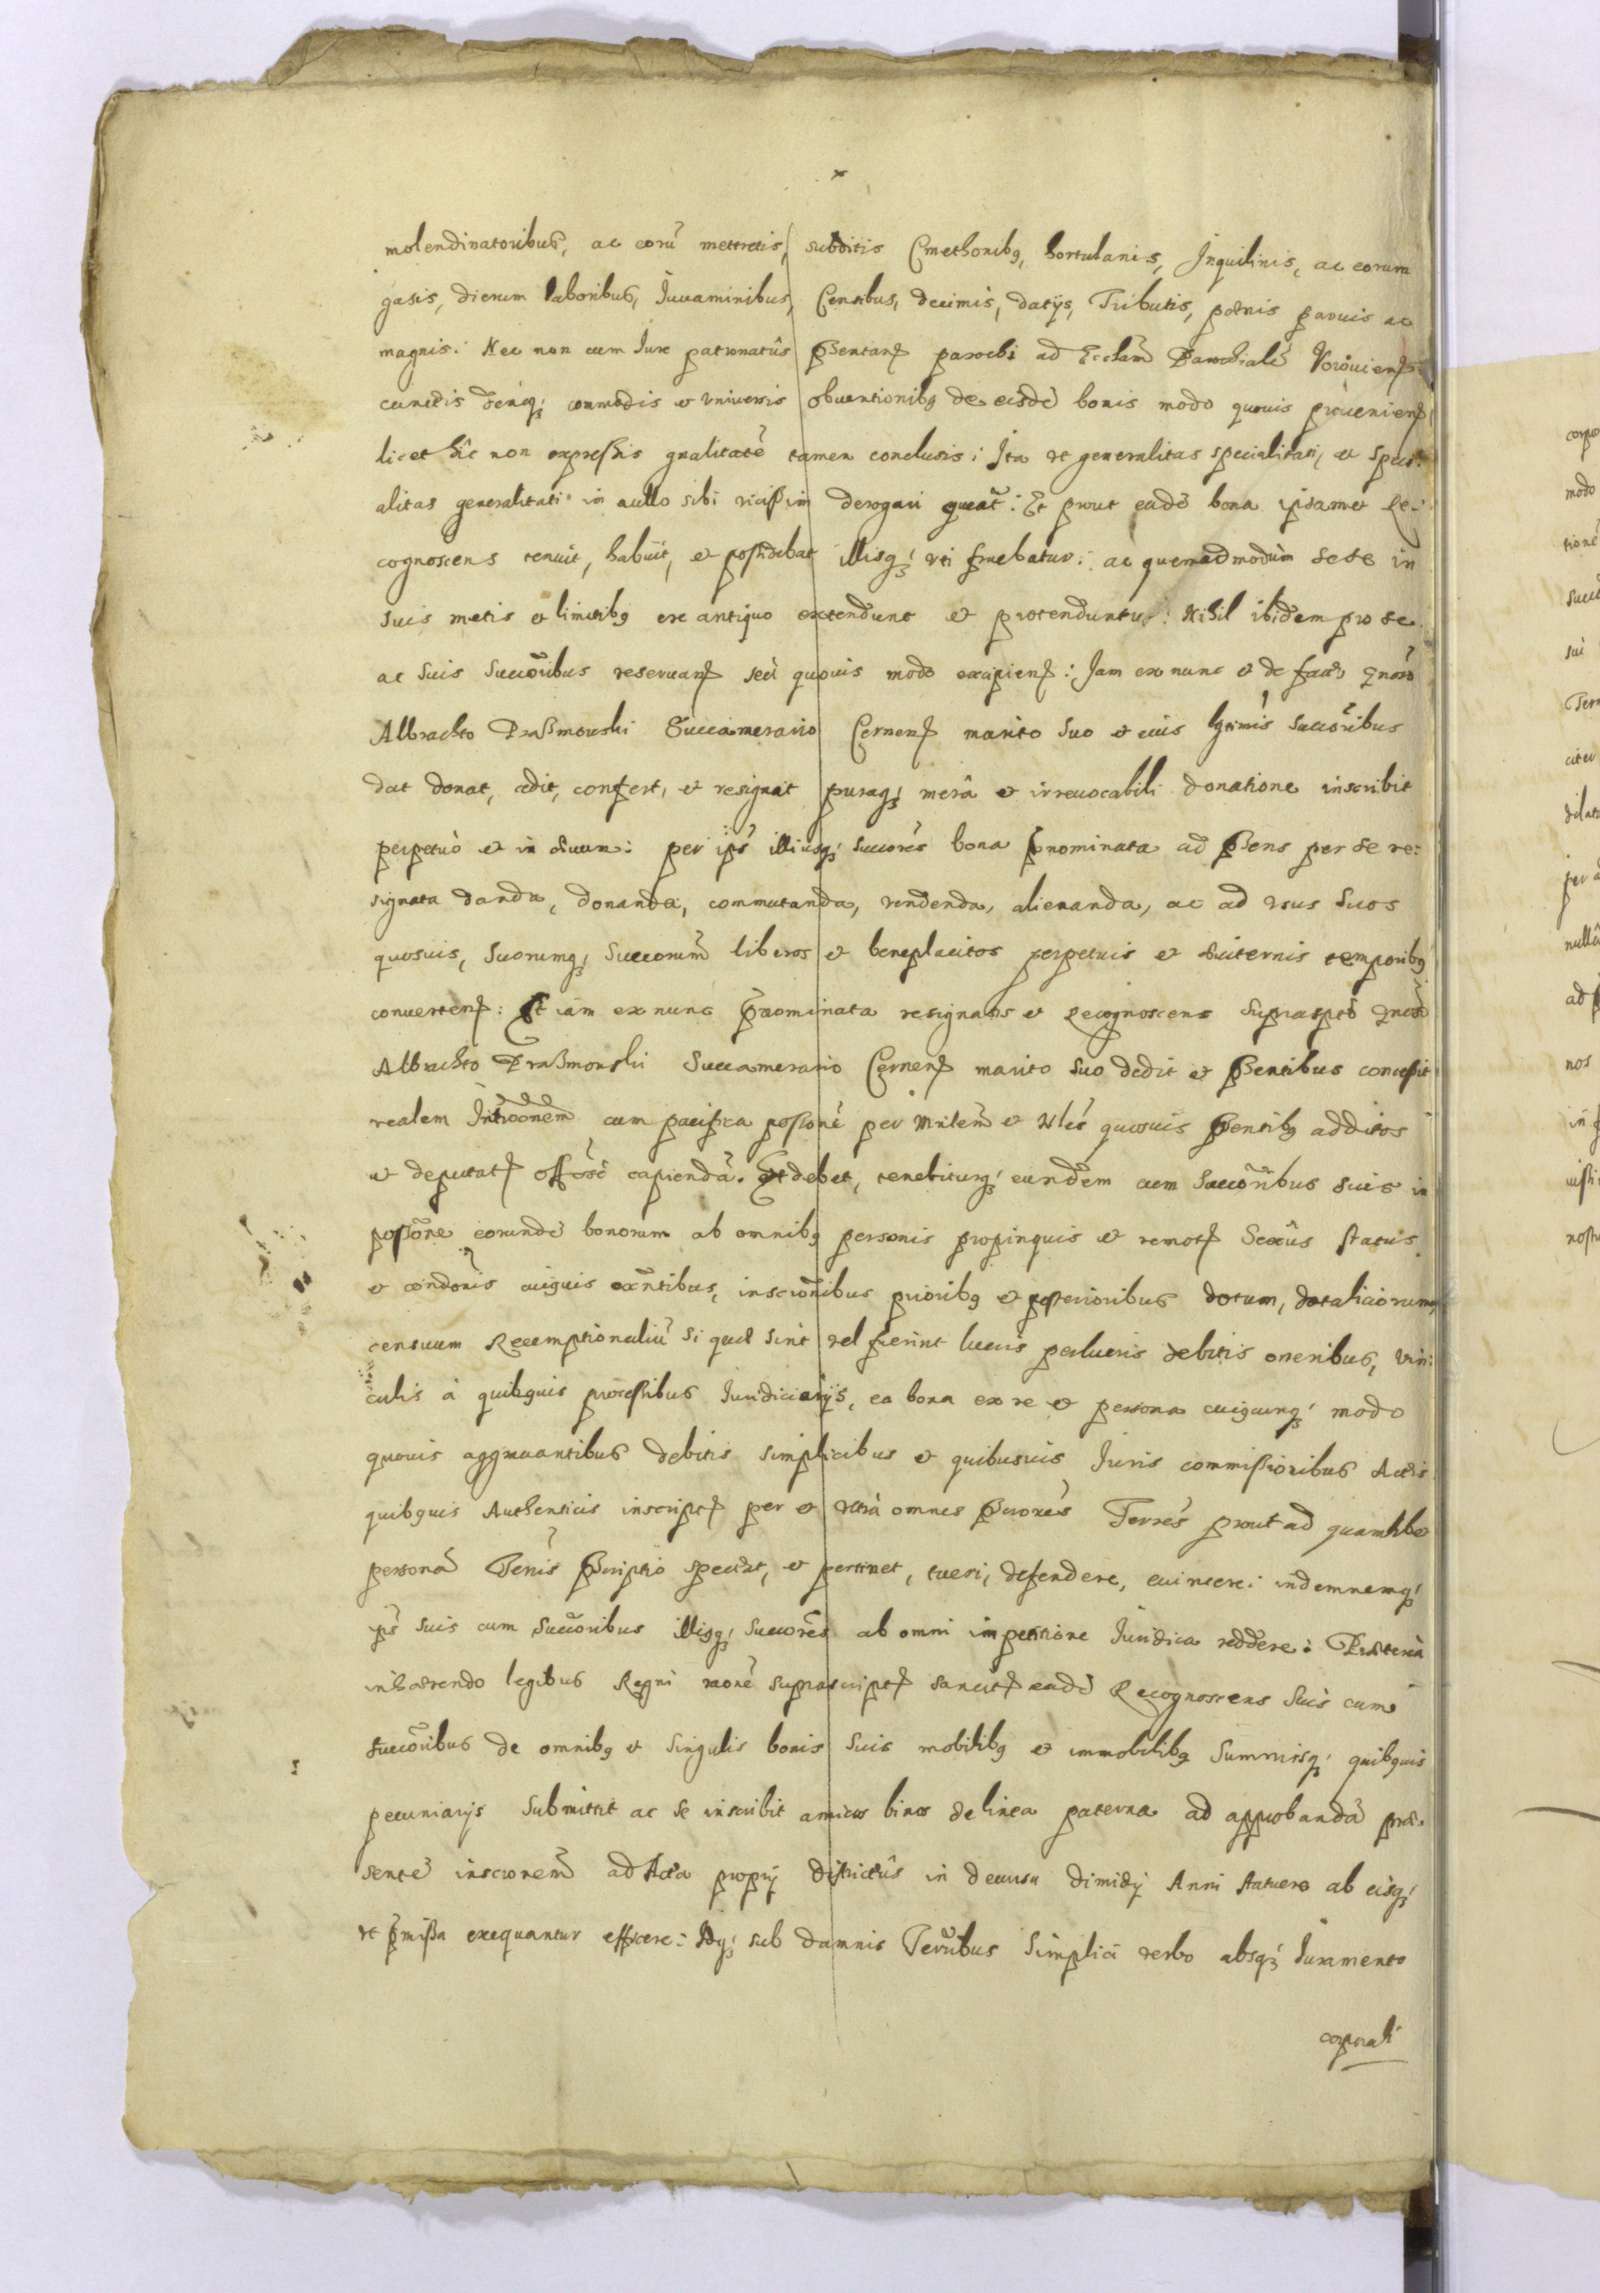 molendinatoribus, ac eorũ mettretis, subditis Cmethonibq, hortulanis, Inquilinis, ac eorum
gasis, dierum laboribus, Iuuaminibus, Censibus, decimis, datijs, Tributis, poenis paruis ac
magnis: Nec non cum Iure patronatûs pñtan parochi ad Ecclam Parochialẽ
cunctis deniq; commodis et vniuersis obuentionibq de eisdẽ bonis modo quouis prouenien
licet hîc non expressis gnalitatẽ tamen conclusis: Ita vt generalitas specialitati, et speci:
alitas generalitati in nullo sibi vicissim derogari queat: Et prout eadẽ bona ipsamet Re:
cognoscens tenuit, habuit, et possidebat illisq; vti fruebatur: ac quemadmodum sese in
suis metis et limitibq ex antiquo extendunt et protenduntur: Nihil ibidem pro se
ac suis succõribus reseruan seù quouis modo excipien: Iam ex nunc et de facto Gnoso
Albrachto Praßmowski Succamerario Cernen marito suo et eius lgtimis succõribus
dat donat, cedit, confert, et resignat puraq; merâ et irreuocabili donatione inscribit
perpetuò et in æuum: per ips̃ illiusq; succorẽs bona pnominata ad pñsens per se re:
signata danda, donanda, commutanda, vendenda, alienanda, ac ad vsus suos
quosuis, suorumq; succorum liberos et beneplacitos perpetuis et æuiternis temporibq
conuerten: Et iam ex nunc prãnominata resignatis et Recognoscens suprasptõ Gnoso
Albrachto Praßmowski Succamerario Cernen marito suo dedit et pñsentibus concessit
realem Intrõonem cum pacifica possionẽ per Mnlem et Nles quosuis pñsentibq additos
et deputat offõse capiendã. Et debet, tenebiturq; eundem cum succõribus suis in
possõne eorundẽ bonorum ab omnibq personis propinquis et remot sexûs statûs
et condonĩs cuiquis exñtibus, inscrõnibus prioribq et posterioribus dotum, dotaliciorum,
censuum Reemptionaliũ si quæ sint vel fierint lucris perlucris debitis oneribus, vin:
culis à quibquis processibus Iudiciarijs, ea bona ex re et persona cuiqcunq; modo
quouis aggrauantibus debitis simplicibus et quibusuis Iuris commissionibus Actis
quibquis Authenticis inscript per et vltrà omnes pscrones Terres prout ad quamlibet
personã Terris pscriptio spectat, et pertinet, tueri, defendere, euincere: indemnemq;
ips̃ suis cum succõribus illisq; succorẽs ab omni impetitione Iuridica reddere: Præterea
inhærendo legibus Regni raone suprascript sancit eadẽ Recognoscens suis cum
succõribus de omnibq et singulis bonis suis mobilibq et immobilibq Summisq; quibquis
pecuniarijs submittit ac se inscribit amicos binos de linea paterna ad approbandã præ:
sentẽ inscronem ad Acta proprij districtûs in decursu dimidij Anni statuere ab eisq;
vt pmissa exequantur efficere: Idq; sub damnis Terribus simplici verbo absq; Iuramento
corporali